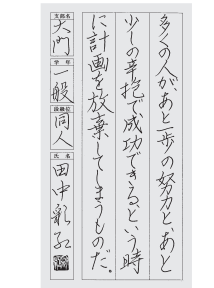 多くの人が、あと一歩の努力と、あと
少しの辛抱で成功できる、という時
に計画を放棄してしまうものだ。
支部名
大門
学年
一般
段級位
同人
氏名
田中彩子